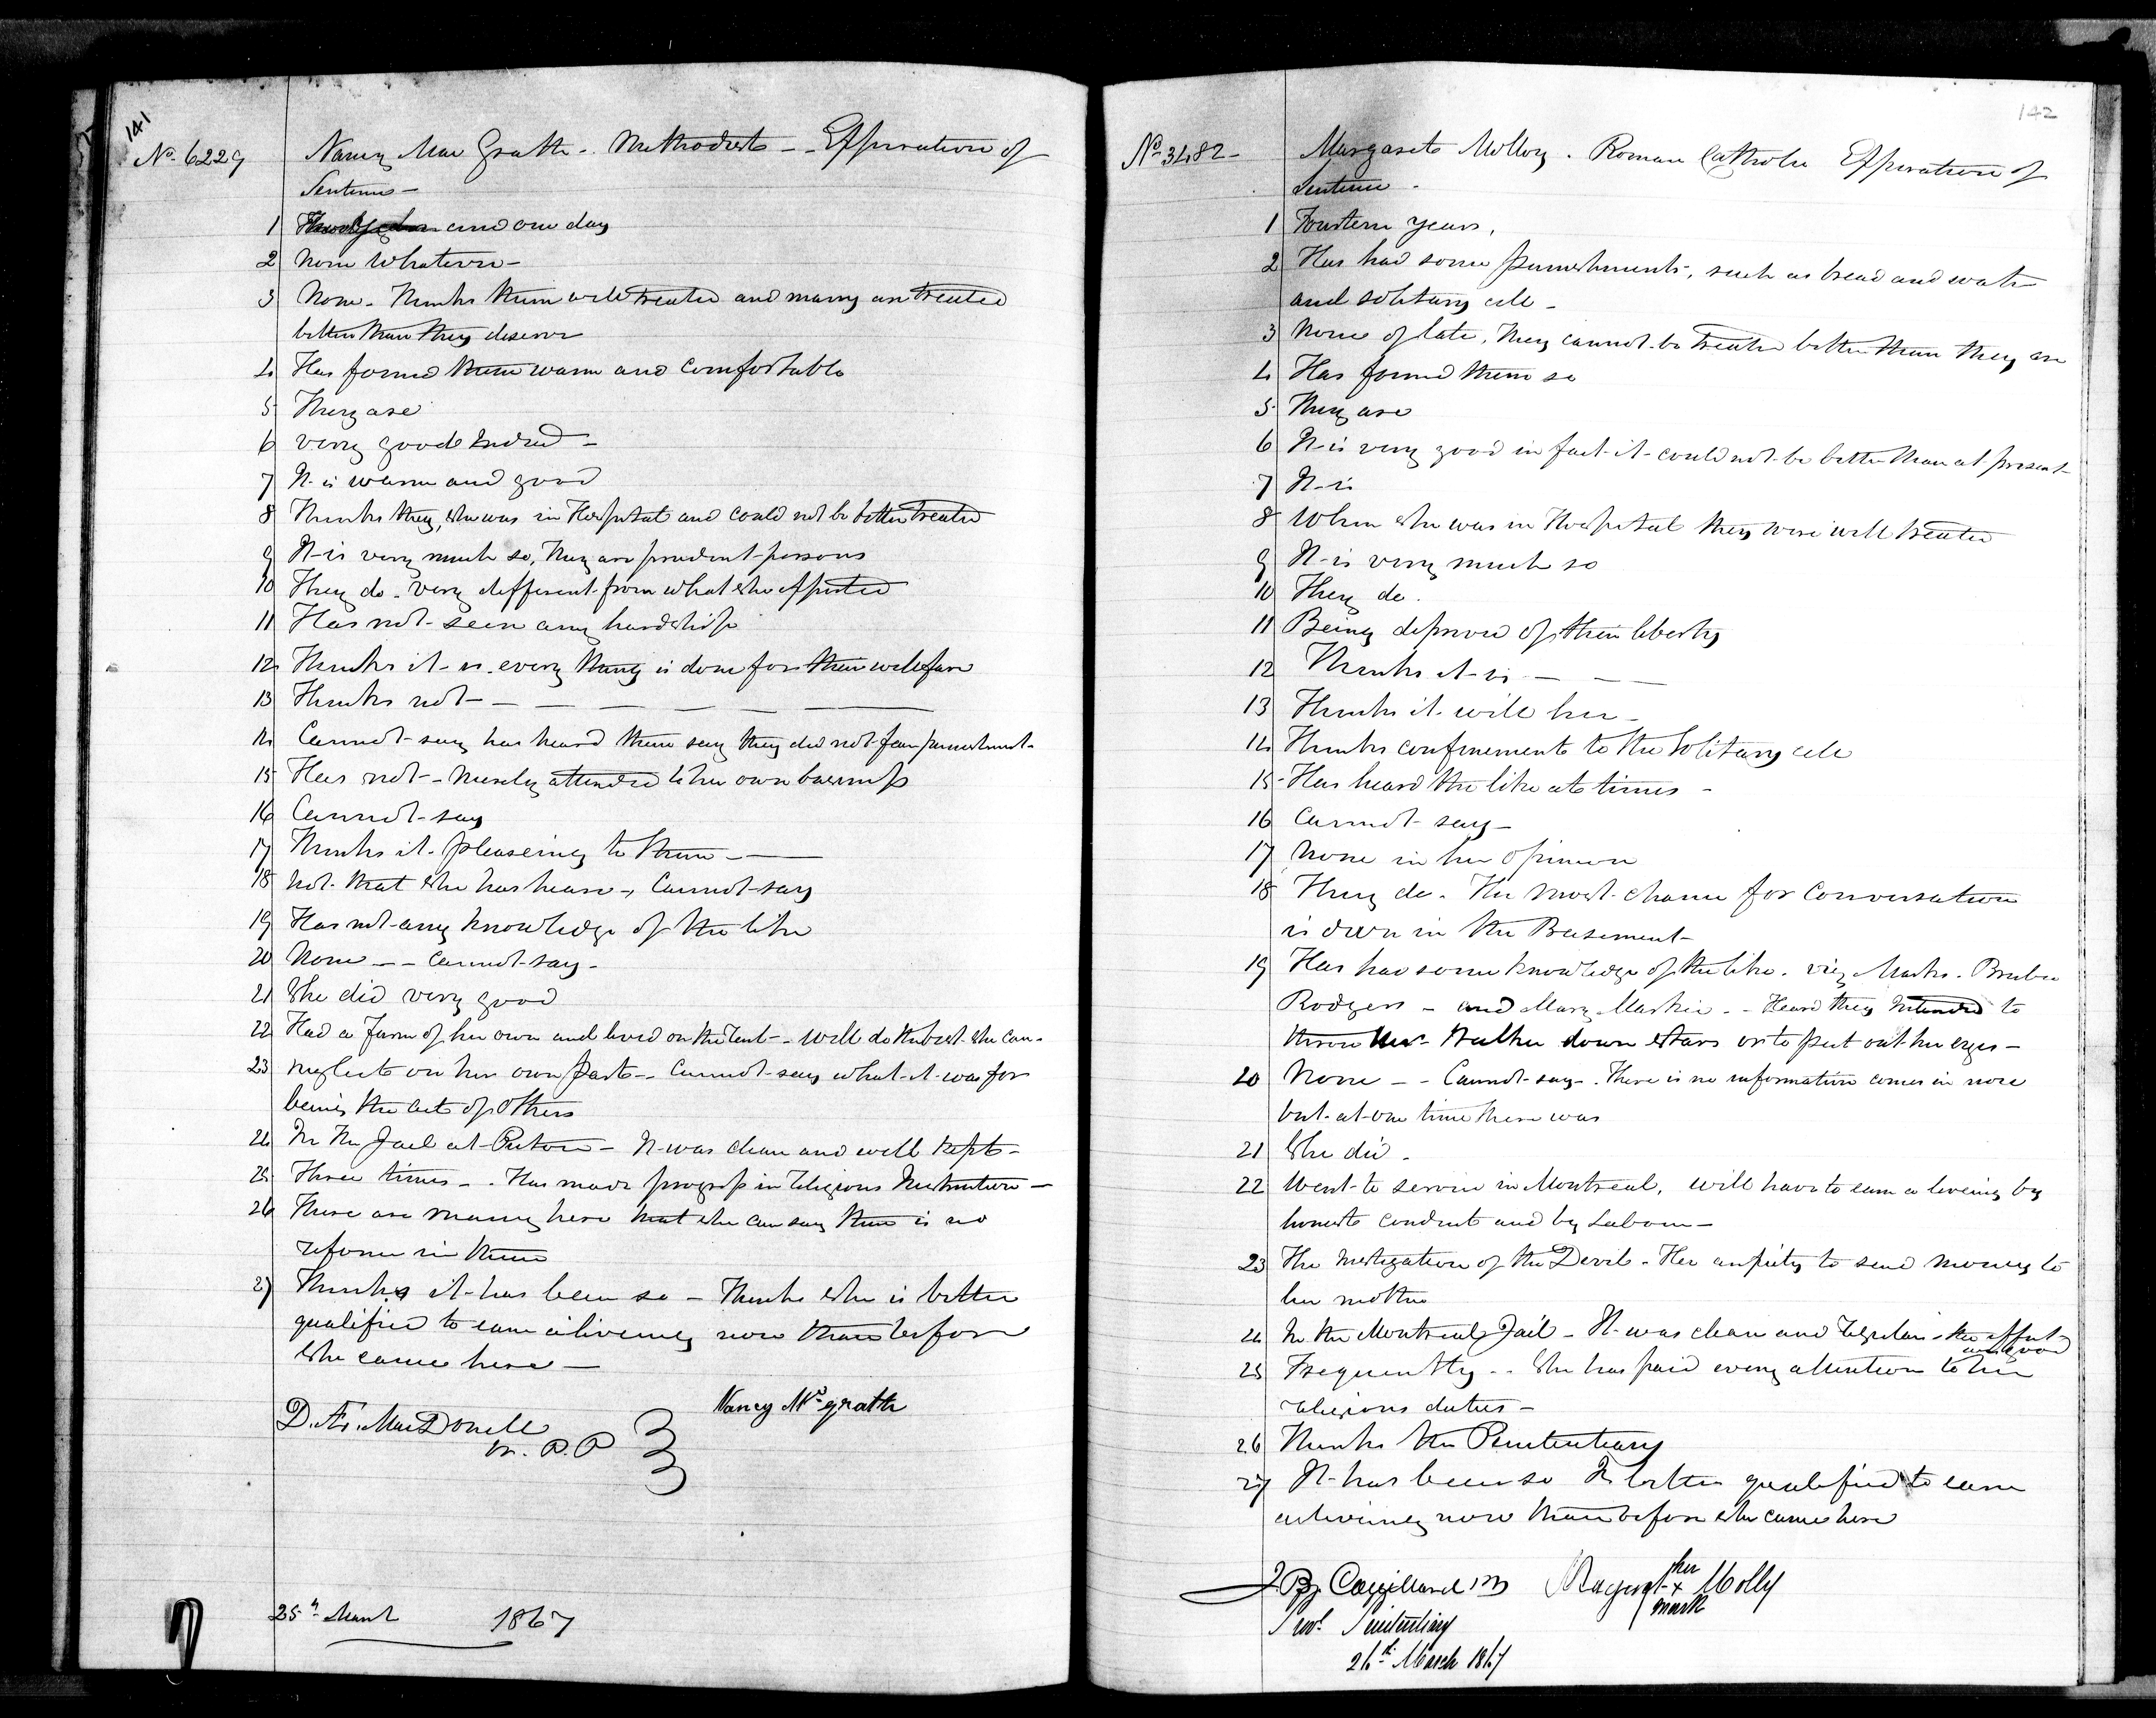 141
No. 6229 Nancy Mac Grath - Methodist - - Expiration of
Sentence -
1 and one day
2 None Whatever -
3 None - Thinks them well treated and many are treated
better than they deserve
4 Has found them warm and comfortable
5 They are
6 very good indeed -
7 It is warm and good
8 Thinks they, she was in Hospital and could not be better treated
9 It is very much so, they are prudent persons
10 They do - very different from what she expected
11 Has not seen any hardship
12 Thinks it is, every thing is done for their wellfare
13 Thinks not - - - - - -
14 Cannot say has heard them say they did not fear punishment -
15 Has not - Merely attended to her own buisness
16 Cannot say
17 Thinks it pleaseing to them - -
18 not that she has heard -, Cannot say
19 Has not any knowledge of the like
20 None - - Cannot say -
21 She did very good
22 Had a Farm of her own and lived on the Rent - - will do the best she can -
23 neglect on her own part - - Cannot say what it was for
being the act of others
24 In the Jail at Picton - It was clean and well kept -
25 Three times - - Has made progress in religious Instruction -
26 There are many here that she can say there is no
reform in them
27 Thinks it has been so - Thinks she is better
qualified to earn a liveing now than before
she came here -
Nancy Mc grath
D. Æ. MacDonell
W. P. P
25th March 1867
142
No 3482 - Margaret Molloy . Roman Catholic Expiration of
Sentence -
1 Fourteen years,
2 Has had some punishments, such as bread and water
and solitary cell -
3 None of late, They cannot be treated better than they are
4 Has found them so
5 They are
6 It is very good in fact it could not be better than at present
7 It is
8 When she was in Hospital they were well treated
9 It is very much so
10 They do .
11 Being deprived of their liberty
12 Thinks it is - - -
13 Thinks it will her -
14 Thinks confinement to the Solitary cell
15 Has heard the like at times -
16 Cannot say -
17 None in her opinion
18 They do . The most chance for Conversation
is down in the Basement -
19 Has had some knowledge of the like . viz Marks .
Rodgers - and Mary - - Heard they intended to
throw Mrs. Walker down stairs or to put out her eyes -
20 None - - Cannot say - . There is no information comes in now
but at one time there was
21 She did .
22 Went to service in Montreal, will have to earn a liveing by
honest conduct and by Labour -
23 The Instigation of the Devil - Her anxiety to send money to
her mother
24 In the Montreal Jail - It was clean and Regular - the effect
was good
25 Frequently . . She has paid every attention to her
religious duties -
26 Thinks the Penitentiary
27 It has been so Is better qualified to earn
a liveing now than before she came here
her
Margaret x Molly
mark
Provl. Penitentiary
26th March 1867